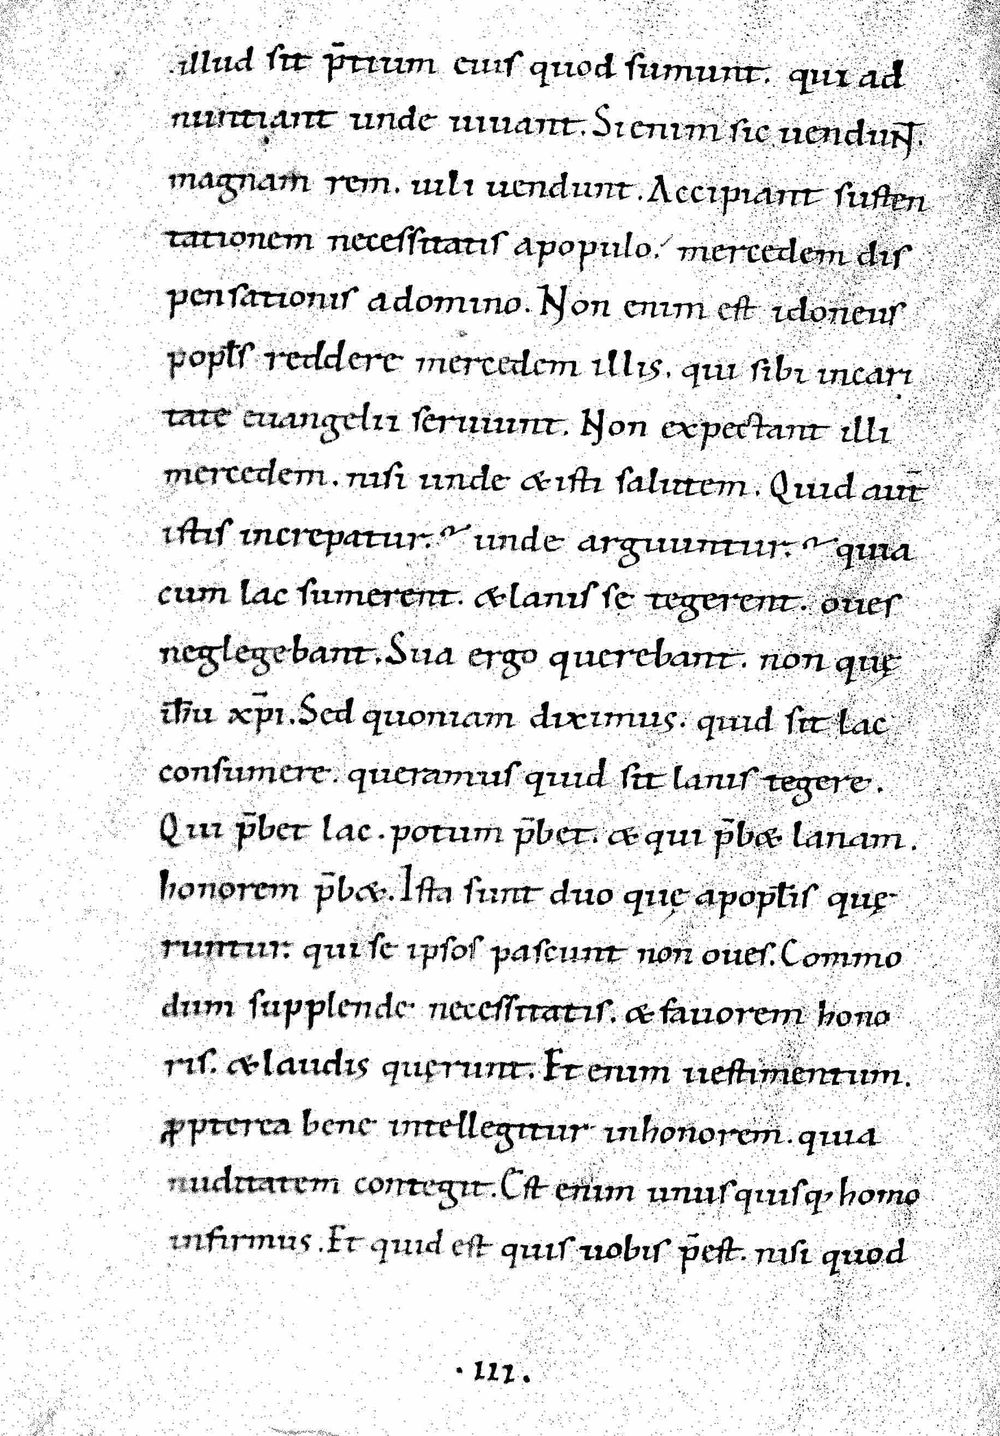 illud sit p̄tium eius quod sumunt. qui ad
nuntiant unde uiuant. Si enim sic uenduNT̄.
magnam rem. uili uendunt. Accipiant susten
tationem necessitatis apopulo. mercedem dis
pensationis adomino. Non enim est idoneus
popl̄s reddere mercedem illis. qui sibi incari
tate euangelii seruiunt. Non expectant illi
mercedem. nisi unde & isti salutem. Quid aut̄
istis increpatur. unde arguuntur. quia
cum lac sumerent. & lanis se tegerent. oues
neglegebant. Sua ergo querebant. non quę
ih̄u xp̄i. Sed quoniam diximus. quid sit lac
consumere. queramus quid sit lanis tegere.
Qui p̄bet lac. potum p̄bet. & qui p̄b& lanam.
honorem p̄b&. Ista sunt duo quę apopl̄is quę
runtur. qui se ipsos pascunt non oues. Commo
dum supplende necessitatis. & fauorem hono
ris. & laudis quęrunt. Et enim uestimentum.
ꝓpterea bene intellegitur inhonorem. quia
nuditatem contegit. Est enim unusquisq; homo
infirmus. Et quid est quis uobis p̄est. nisi quod
· III.